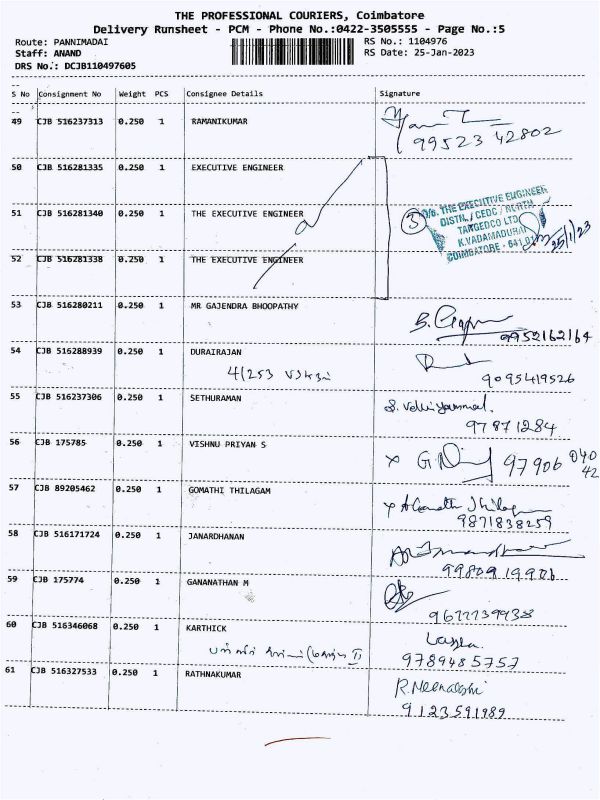 THE PROFESSIONAL COURIERS, Coimbatore
Delivery Runsheet - PCM - Phone No.:0422-3505555 - Page No.:5
Route: PANNIMADAI RS No.: 1104976
Staff: ANAND RS Date: 25-Jan-2023
DRS No.: DCJB110497605
S No Consignment No Weight PCS Consignee Details Signature
49 CJB 516237313 0.250 1 RAMANIKUMAR
99523 42802
50 CJB 516281335 0.250 1 EXECUTIVE ENGINEER
51 CJB 516281340 0.250 1 THE EXECUTIVE ENGINEER
3
O/o. THE EXECUTIVE ENGINEER
DISTN. / CEDC / NORTH
TANGEDCO LTD
K.VADAMADURAI
COIMBATORE - 641 017
25/1/23
52 CJB 516281338 0.250 1 THE EXECUTIVE ENGINEER
53 CJB 516280211 0.250 1 MR GAJENDRA BHOOPATHY
9952162164
54 CJB 516288939 0.250 1 DURAIRAJAN
4/253
9095419526
55 CJB 516237306 0.250 1 SETHURAMAN
97871284
56 CJB 175785 0.250 1 VISHNU PRIYAN S
97906 040
42
57 CJB 89205462 0.250 1 GOMATHI THILAGAM
9871838259
58 CJB 516171724 0.250 1 JANARDHANAN
59 CJB 175774 0.250 1 GANANATHAN M
60 CJB 516346068 0.250 1 KARTHICK
9789485757
61 CJB 516327533 0.250 1 RATHNAKUMAR
R.Meenakshi
9123591989